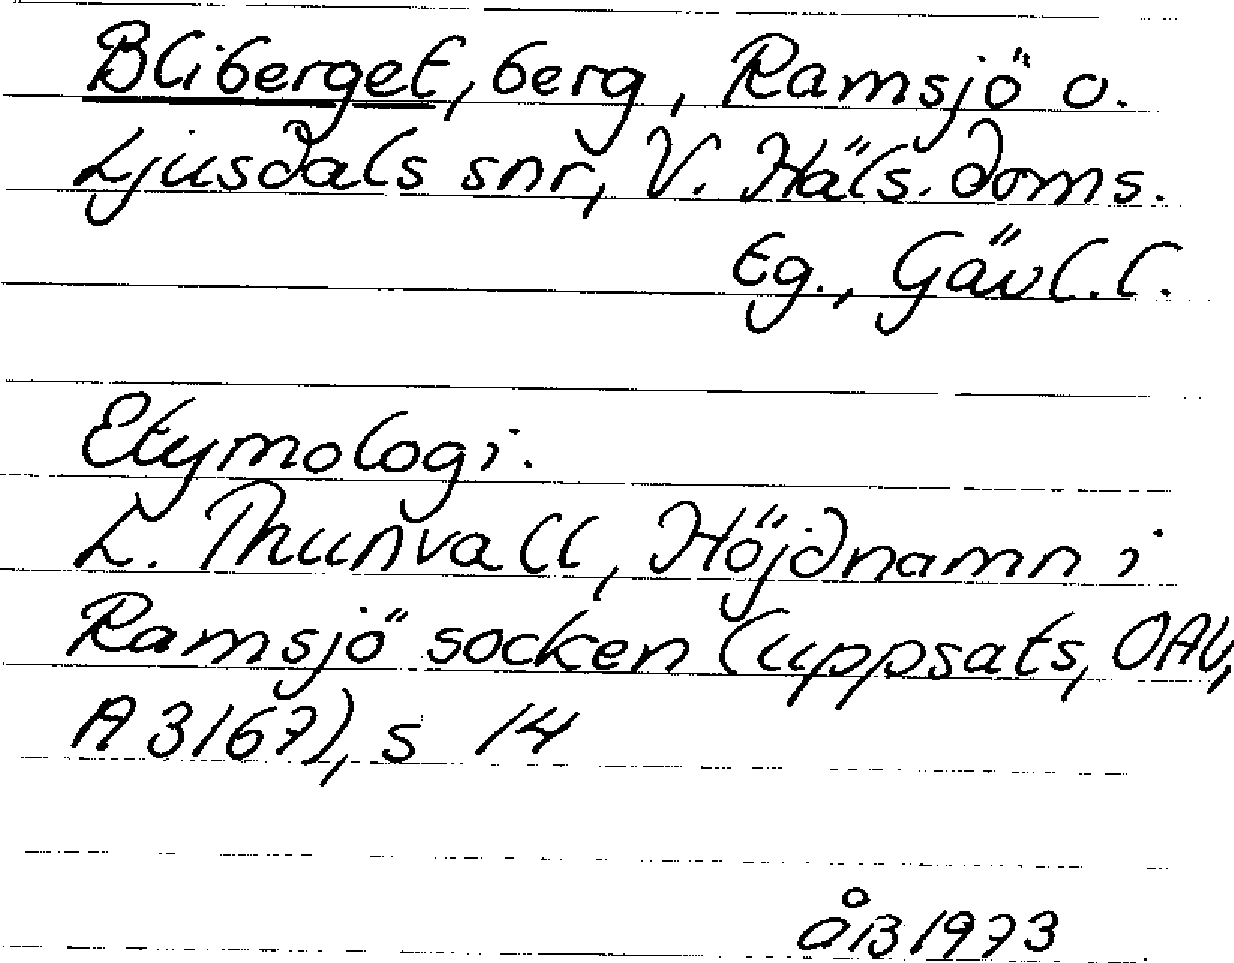 Bliberget, berg, Ramsjö o.
Ljusdals snr, V. Häls. doms.
Eg., Gävl. l.
Etymologi.
L. Thunvall, Höjdnamn i
Ramsjö socken (uppsats, OAU,
A 3167), s 14
ÅB 1973